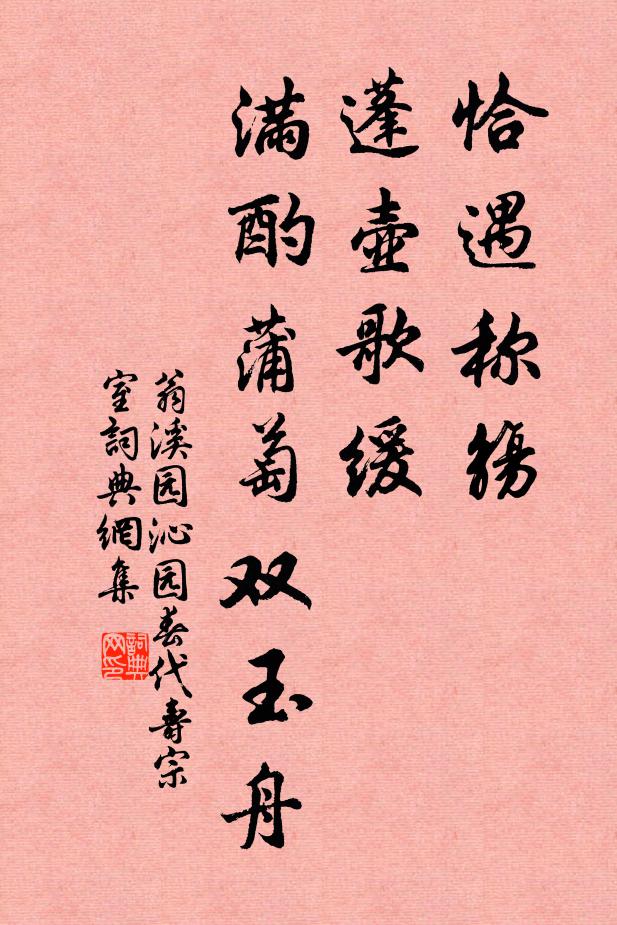 恰遇称觞
蓬壶歌缓
满酌蒲萄双玉舟
翁溪园沁园春代寿宗
室詞典網集
詞典
网印